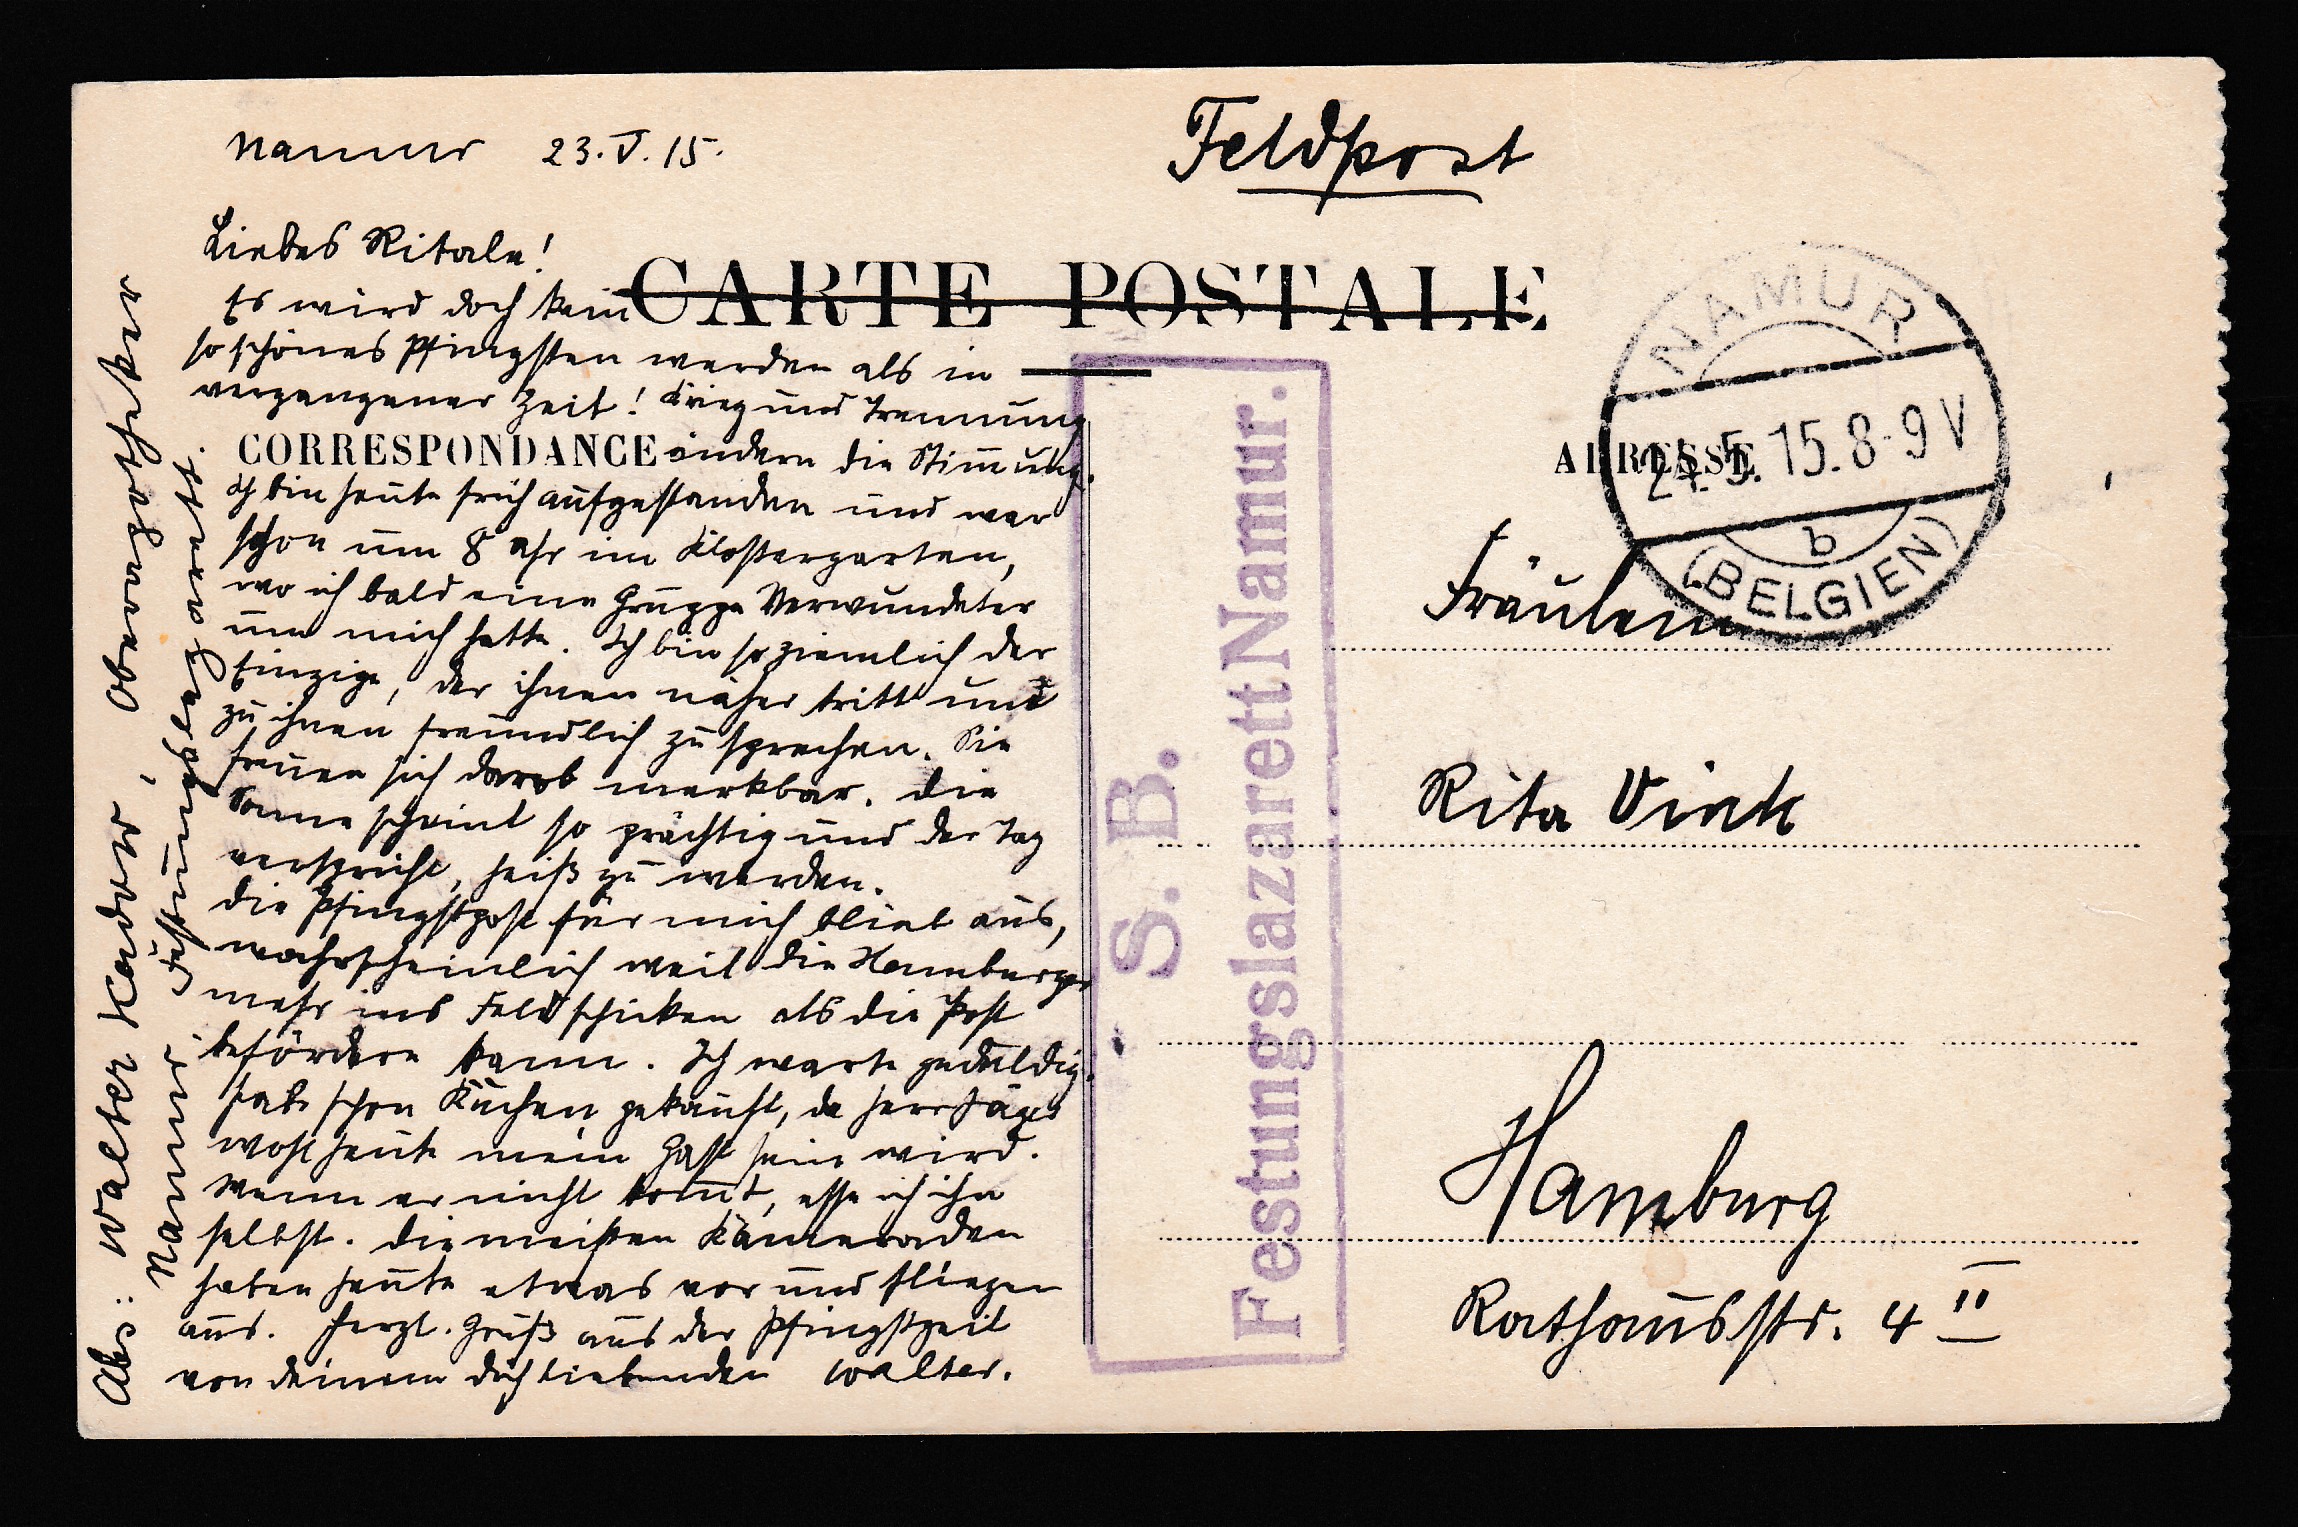 Namur 23.V.15.
Feldpost
Liebes Ritale!
CARTE POSTALE
Es wird doch kein
so schönes Pfingsten werden als in
vergangener Zeit! Krieg und Trennung
CORRESPONDANCE
ändern die Stimmung.
Ich bin heute früh aufgestanden und war
schon um 8 Uhr im Klostergarten,
wo ich bald eine Gruppe Verwundeter
um mich hatte. Ich bin so ziemlich der
Einzige, der ihnen näher tritt und
zu ihnen freundlich zu sprechen. Sie
freuen sich darob merkbar. Die
Sonne scheint so prächtig und der Tag
verspricht, heiß zu werden.
Die Pfingstpost für mich blieb aus,
wahrscheinlich weil die Hamburger
mehr ins Feld schicken als die Post
befördern kann. Ich warte geduldig,
habe schon Kuchen gekauft, da Herr Jäger
wohl heute mein Gast sein wird.
Wenn er nicht kom̅t, esse ich ihn
selbst. Die meisten Kameraden
haben heute etwas vor und fliegen
aus. Herzl. Gruß aus der Pfingstzeit
von deinem dich liebenden Walter.
Abs: Walter Kadow, Oberapotheker
Namur. Festungslazarett.
S. B.
Festungslazarett Namur.
NAMUR
24.5.15.8-9V
b
(BELGIEN)
ADRESSE
Fräulein
Rita Vink
Hamburg
Rathausstr. 4 II